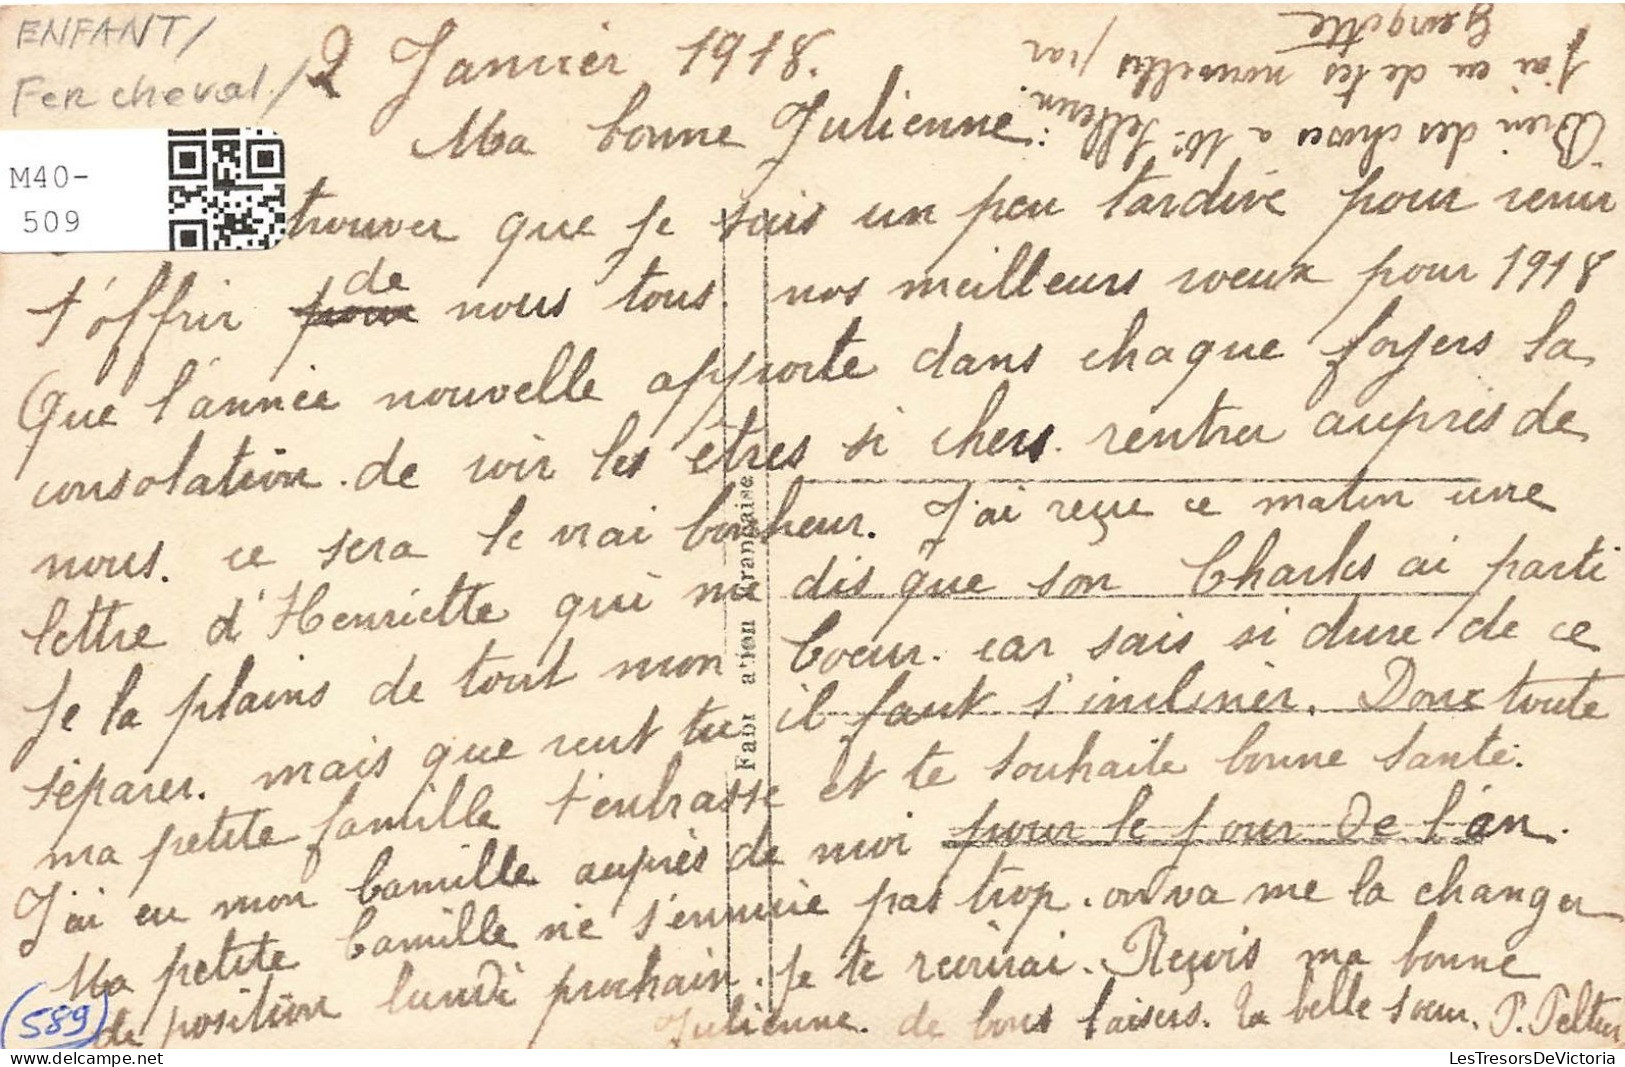 ENFANT/
Fer cheval./
M40-
509
2 Janvier 1918.
Ma bonne Julienne:
trouver que je sais un peu tardive pour venir
t'offrir pour de nous tous. nos meilleurs voeux pour 1918
Que l'année nouvelle apporte dans chaque foyers la
consolation. de voir les êtres si chers. rentrer auprès de
nous. ce sera le vrai bonheur. J'ai reçue ce matin une
lettre d'Henriette qui me dis que son Charles ai parti
Je la plains de tout mon coeur. car sais si dure de ce
séparer. mais que veut tu il faut s'incliner. Donc toute
ma petite famille t'embrasse et te souhaite bonne santé.
J'ai eu mon Camille auprès de moi pour le jour de l'an.
Ma petite Camille ne s'ennuie pas trop. on va me la changer
de position lundi prochain. Je te reverrai. Reçois ma bonne
Julienne. de bons baisers. ta belle soeur. P. Peltier
Bien des choses a Mr Pelletier.
J'ai eu de tes nouvelles par
Georgette
Fabrication Française
589
LesTresorsDeVictoria